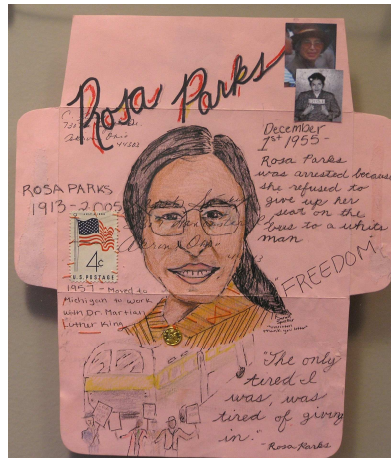 Rosa Parks
December
1st 1955-
Rosa Parks
was arrested because
she refused to
give up her
seat on the
bus to a white
man
ROSA PARKS
1913-2005
4¢
U.S. POSTAGE
FREEDOM
1957 - Moved to
Michigan to work
with Dr Martian
Luther King
"The only
tired I
was, was
tired of giving
in."
- Rosa Parks